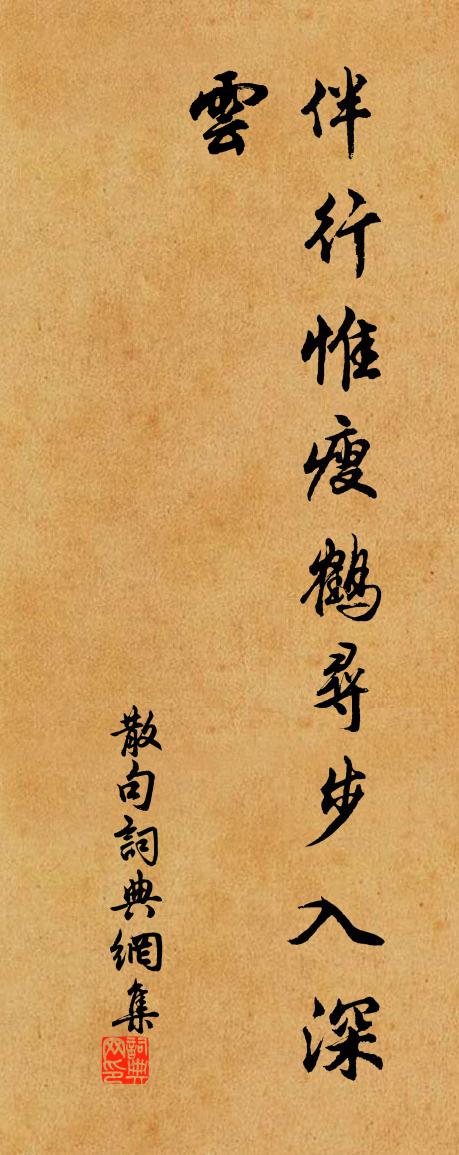 伴行惟瘦鶴尋步入深
雲
散句詞典網集
詞典網印